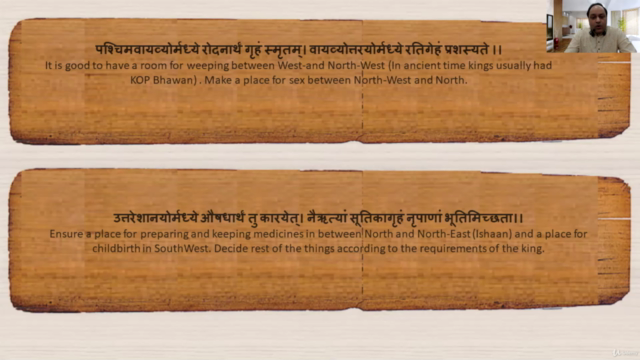 पश्चिमवायव्योर्मध्ये रोदनार्थं गृहं स्मृतम्। वायव्योत्तरयोर्मध्ये रतिगेहं प्रशस्यते ।।
It is good to have a room for weeping between West-and North-West (In ancient time kings usually had
KOP Bhawan) . Make a place for sex between North-West and North.
उत्तरेशानयोर्मध्ये औषधार्थं तु कारयेत्। नैऋत्यां सूतिकागृहं नृपाणां भूतिमिच्छता।।
Ensure a place for preparing and keeping medicines in between North and North-East (Ishaan) and a place for
childbirth in SouthWest. Decide rest of the things according to the requirements of the king.